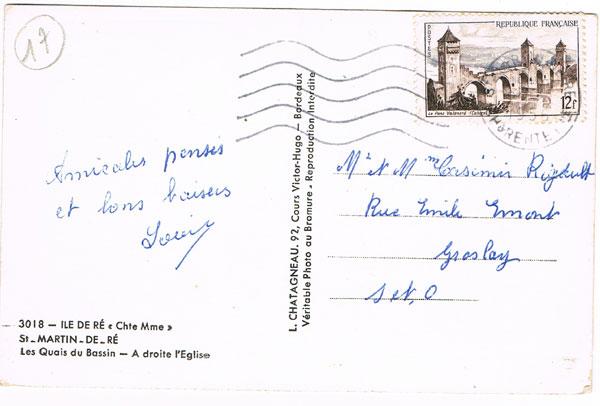 17
REPUBLIQUE FRANÇAISE
POSTES
Le Pont Valentré (Cahors)
12F
Amicales pensés
et bons baisers
Mr et Mme Casimir
Rue Emile Aimont
Groslay
S et O
L. CHATAGNEAU. 92, Cours Victor-Hugo — Bordeaux
Véritable Photo au Bromure - Reproduction Interdite
3018 — ILE DE RÉ « Chte Mme »
St-MARTIN-DE-RÉ
Les Quais du Bassin — A droite l'Eglise